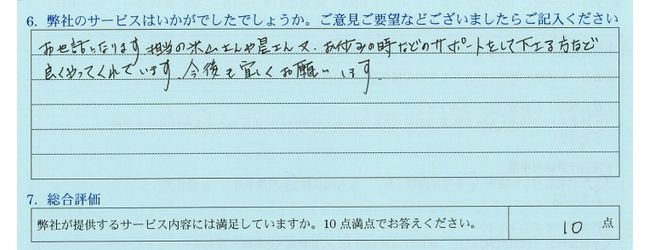 6. 弊社のサービスはいかがでしたでしょうか。ご意見ご要望などございましたらご記入ください
お世話になります 担当の米山さんや是さん 又、お休みの時などのサポートをして下さる方など
良くやってくれています。今後も宜しくお願いします。
7. 総合評価
弊社が提供するサービス内容には満足していますか。10点満点でお答えください。 10 点